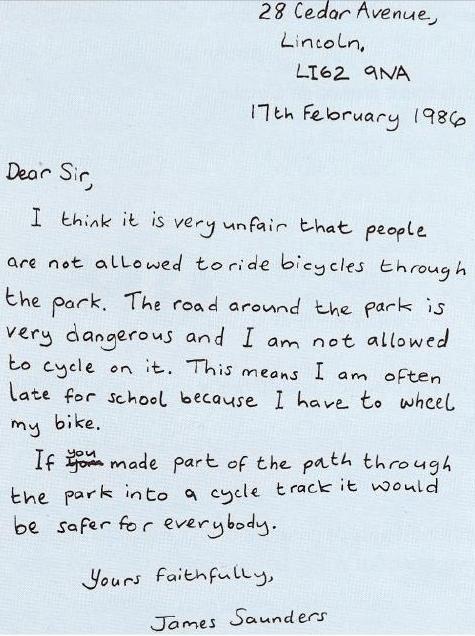 28 Cedar Avenue,
Lincoln,
LI62 9NA
17th February 1986
Dear Sir,
I think it is very unfair that people
are not allowed to ride bicycles through
the park. The road around the park is
very dangerous and I am not allowed
to cycle on it. This means I am often
late for school because I have to wheel
my bike.
If you made part of the path through
the park into a cycle track it would
be safer for everybody.
Yours faithfully,
James Saunders